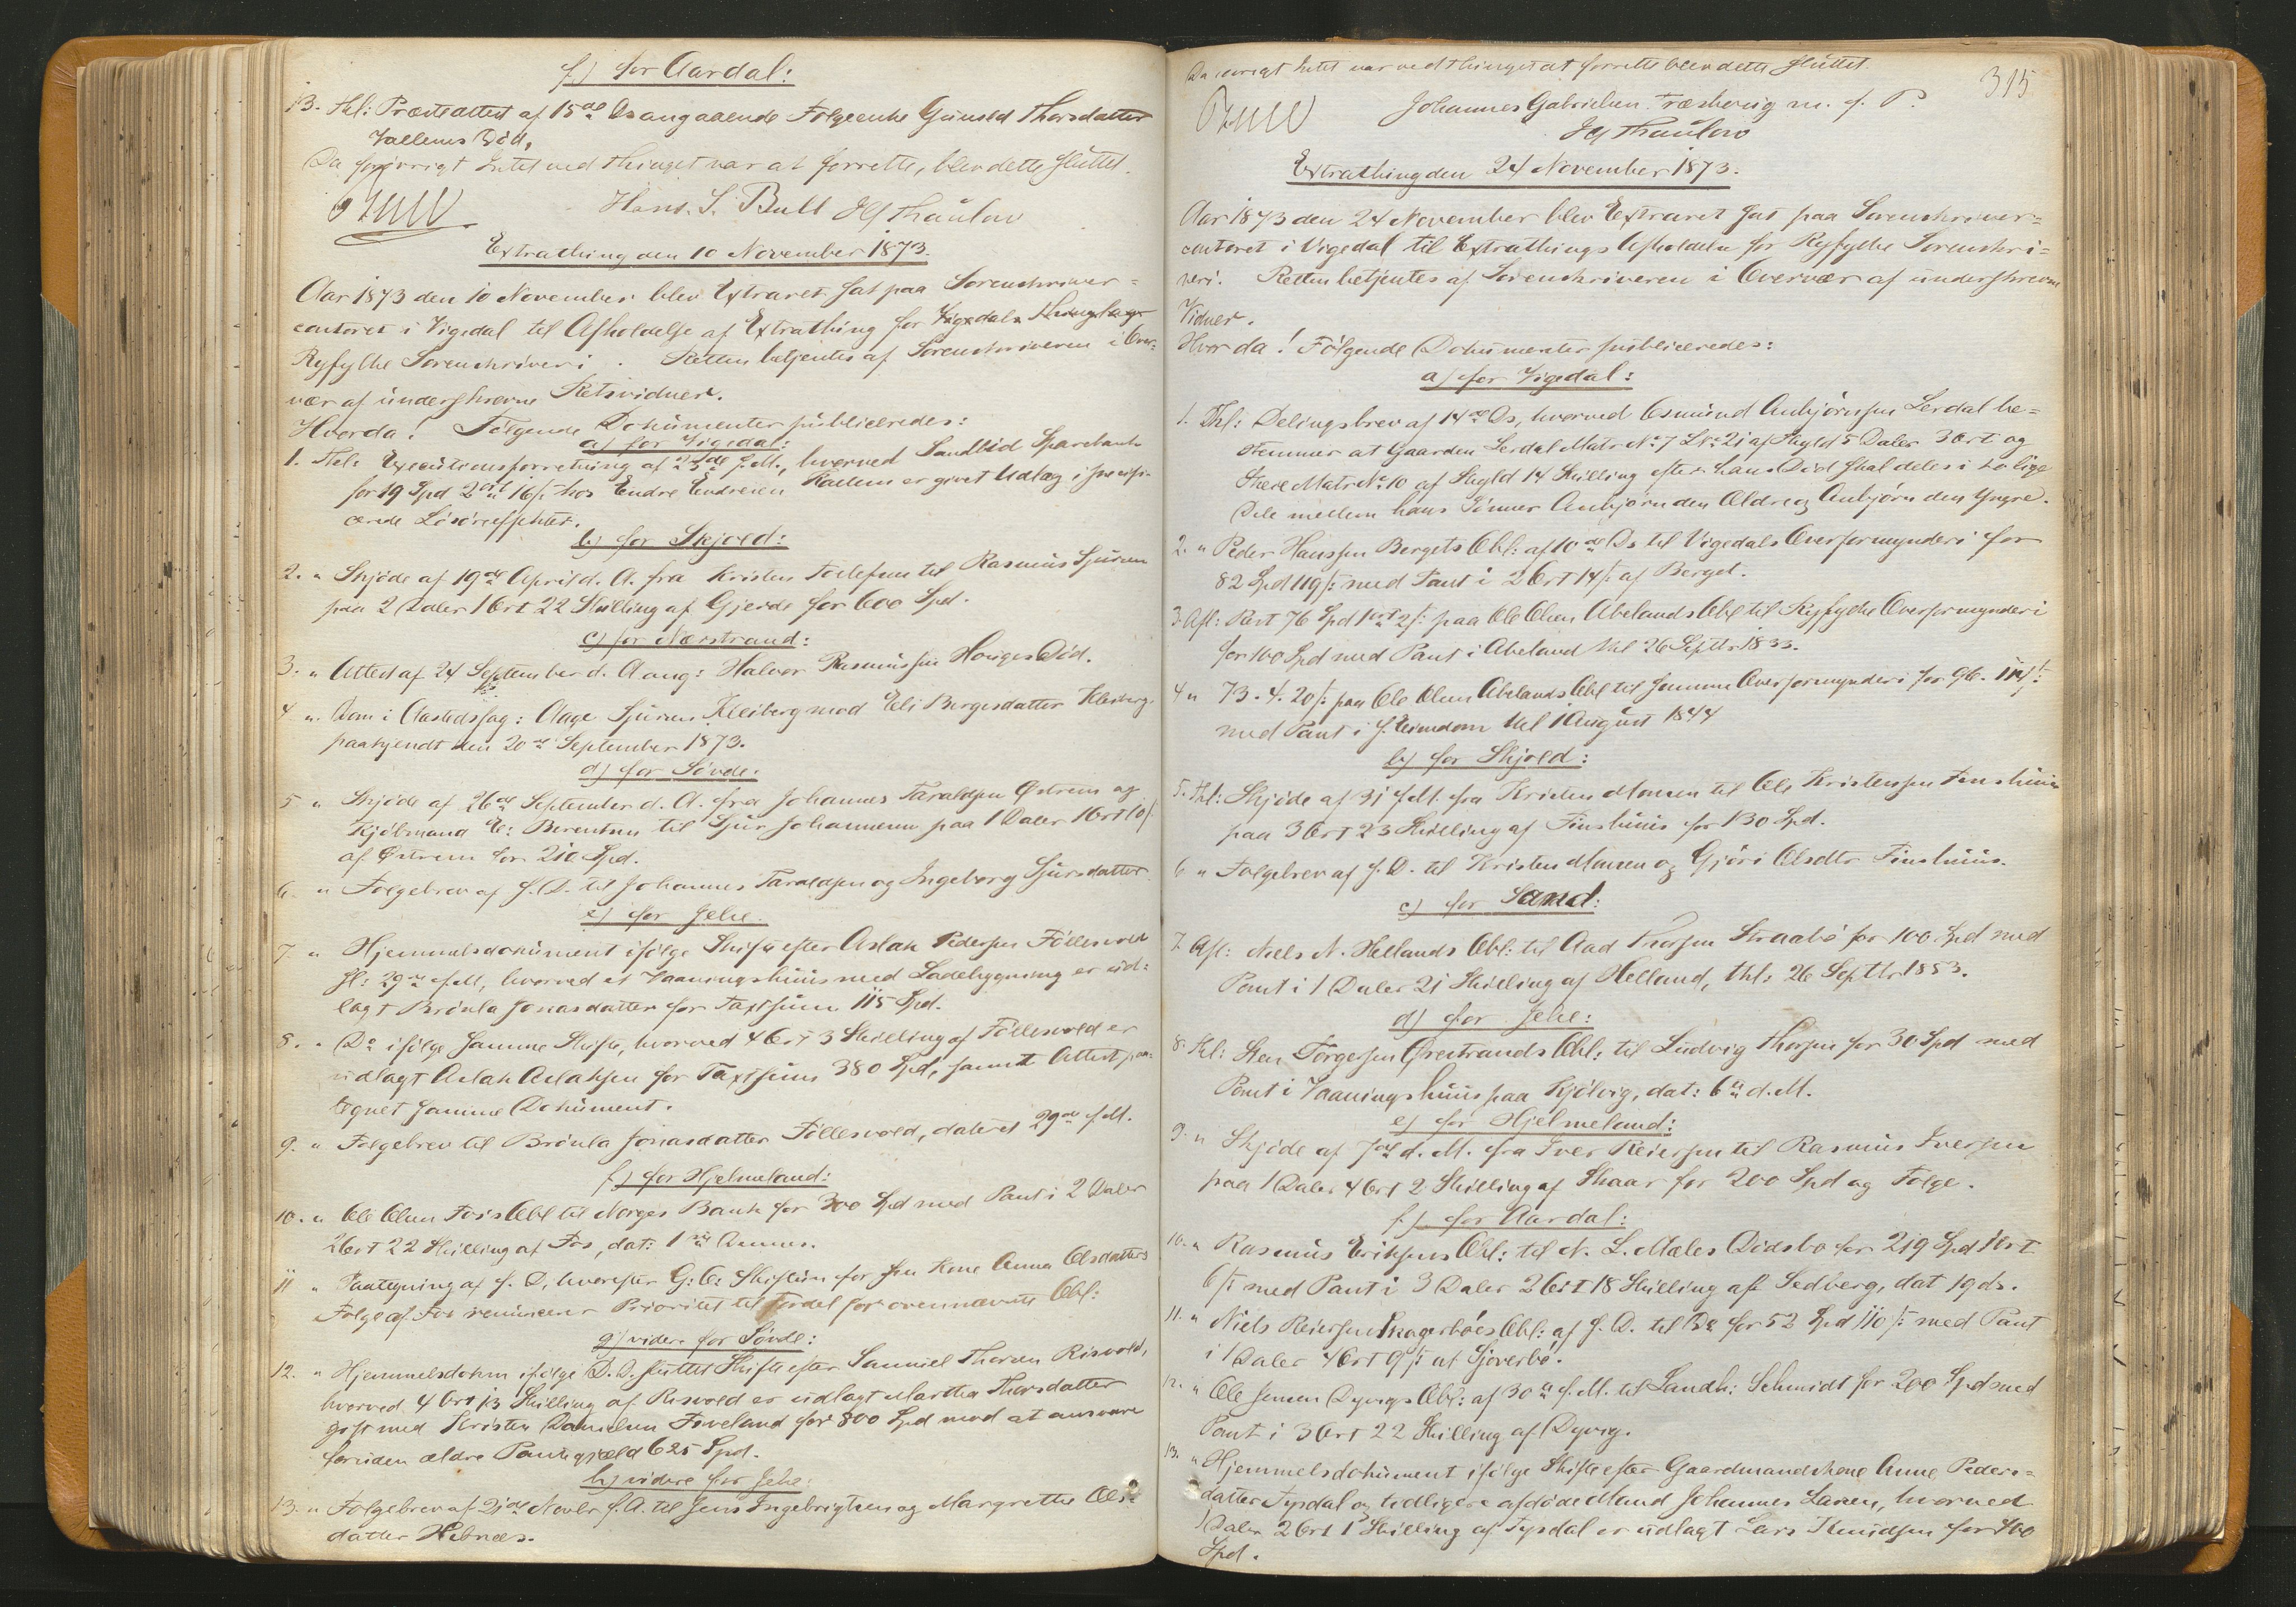 f) for Aardal:
13. Thl: Præsteattest af 15de Ds angaaende Folgeenke Gunild Thorsdatter
Vallems Död,
Da forövrigt Intet ved Thinget var at forrette, blev dette sluttet.
Hans. S. Bull
Thaulow
Extrathing den 10 November 1873.
Aar 1873 den 10 November blev Extraret sat paa Sorenskriver=
contoret i Vigedal til Afholdelse af Extrathing for Vigedals Thinglag
Ryfylke Sorenskriveri. Retten betjentes af Sorenskriveren i Over=
vær af underskrevne Retsvidner.
Hvorda! Følgende Dokumenter publiceredes:
a) for Vigedal:
1. Thl: Executionsforretning af 25de f. M., hvorved Sandeid Sparebank
for 19 Spd 2 ort 16 s hos Endre Endresen Hallem er givet Udlæg i specifi-
cerede Lösöreeffekter.
b) for Skjold:
2. " Skjöde af 19de April d. A. fra Kristen Tollefsen til Rasmus Sjursen
paa 2 Daler 1 Ort 22 Skilling af Gjerde for 600 Spd.
c) for Nærstrand:
3. " Attest af 24 September d. A ang: Halvor Rasmussen Houges Död.
4 " Dom i Aastedssag: Aage Sjursen Kleiberg mod Eli Bergesdatter Kleiberg,
paakjendt den 20de September 1873.
d) for Sövde:
5 " Skjöde af 26de September d. A. fra Johannes Taraldsen Østrem og
Kjöbmand E: Berentsen til Sjur Johannesen paa 1 Daler 1 Ort 10 s
af Østrem for 210 Spd.
6. " Folgebrev af s. D. til Johannes Taraldsen og Ingeborg Sjursdatter
e) for Jelse.
7. " Hjemmelsdokument ifölge Skifte efter Aslak Pedersen Föllesvold
sl: 29de f. M, hvorved et Vaaningshuus med Ladebygning er ud=
lagt Brönla Jonasdatter for Taxtsum 115 Spd.
8. " Do ifölge samme Skifte, hvorved 4 Ort 3 Skilling af Föllesvold er
udlagt Aslak Aslaksen for Taxtsum 380 Spd, samt Attest paa=
tegnet samme Dokument.
9. " Folgebrev til Brönla Jonasdatter Föllesvold, dateret 29de f. M.
f) for Hjelmeland:
10. " Ole Olsen Fos's Obl til Norges Bank for 300 Spd med Pant i 2 Daler
2 Ort 22 Skilling af Fos, dat: 1ste
11 " Paategning af s. D, hvorefter G: O: Skiftun for sin Kone Anna Olsdatters
Folge af Fos renuncerer Prioritet til Fordel for ovennævnte Obl:
g) videre for Sövde:
12. " Hjemmelsdokum ifölge D. D. sluttet Skifte efter Samuel Thorsen Risvold,
hvorved 4 Ort 13 Skilling af Risvold er udlagt Martha Thorsdatter
gift med Kristen Danielsen Foveland for 800 Spd mod at ansvare
foruden ældre Pantegjæld 625 Spd.
h) videre for Jelse:
13. " Folgebrev af 21de Novbr f. A. til Jens Ingebrigtsen og Margrethe Ols=
datter Hebnæs.
Da iövrigt Intet var ved Thinget at forrette blev dette sluttet.
315
Johannes Gabrielsen Træskevig m. f. P.
Thaulow
Extrathing den 24 November 1873.
Aar 1873 den 24 November blev Extraret sat paa Sorenskriver=
contoret i Vigedal til Extrathings Afholdelse for Ryfylke Sorenskri=
veri. Retten betjentes af Sorenskriveren i Overvær af underskrevne
Vidner.
Hvor da! Fölgende Dokumenter publiceredes:
a) for Vigedal:
1. Thl: Delingsbrev af 14de Ds, hvorved Osmund Anbjörnsen Lerdal be=
stemmer at Gaarden Lerdal Matr No 7 Lno 21 af Skyld 5 Daler 3 Ort og
Matr No 10 af Skyld 14 Skilling efter hans Död skal deles i to lige
Dele mellem hans Sönner Anbjörn den Ældre og Anbjörn den Yngre.
2. " Peder Hanssen Bergets Obl: af 10de Ds til Vigedals Overformynderi for
82 Spd 119 s med Pant i 2 Ort 14 s af Berget.
3. Afl: Rest 76 Spd 1 ort 2 s paa Ole Olsen Abelands Obl til Ryfylke Overformynderi
for 100 Spd med Pant i Abeland thl 26 Septbr 1833.
4 " 73. 4. 20 s paa Ole Olsen Abelands Obl til samme Overformynderi for 96.
med Pant i s. Eiendom thl 1 August 1844
b) for Skjold:
5. Thl: Skjöde af 31 f. M. fra Kristen Monsen til Ole Kristensen Finshuus
paa 3 Ort 23 Skilling af Finshuus for 130 Spd.
6 " Folgebrev af s. D. til Kristen Monsen og Gjöri Olsdtr Finshuus.
c) for Sand:
7. Afl: Niels N. Hellands Obl: til Aad Thorsen Straabö for 100 Spd med
Pant i 1 Daler 21 Skilling af Helland, thl: 26 Septbr 1853.
d) for Jelse:
8. Thl: Sten Torgersen Østrands Obl: til Ludvig Thorsen for 30 Spd med
Pant i Vaaningshuus paa Kjölvig, dat: 6te d. M.
e) for Hjelmeland:
9. " Skjöde af 7de d. M. fra Iver Reiersen til Rasmus Iversen
paa 1 Daler 4 Ort 2 Skilling af Skaar for 200 Spd og Folge.
f.) for Aardal:
10. " Rasmus Eriksens Obl: til N. L. Mæles Dödsbo for 219 Spd 1 Ort
6 s med Pant i 3 Daler 2 Ort 18 Skilling af Sedberg, dat 19 ds.
11. " Niels Reiersen Obl: af s. D. til Do for 52 Spd 110 s med Pant
i 1 Daler 4 Ort 9 s af
12. " Ole Jensen Dyvigs Obl: af 30te f. M. til Landh: Schmidt for 200 Spd med
Pant i 3 Ort 22 Skilling af Dyvig.
13. " Hjemmelsdokument ifölge Skifte efter Gaardmandskone Anne Peders=
datter Tysdal og tidligere afdöde Mand Johannes Larsen, hvorved
1 Daler 2 Ort 1 Skilling af Tysdal er udlagt Lars Knudsen for 400
Spd.